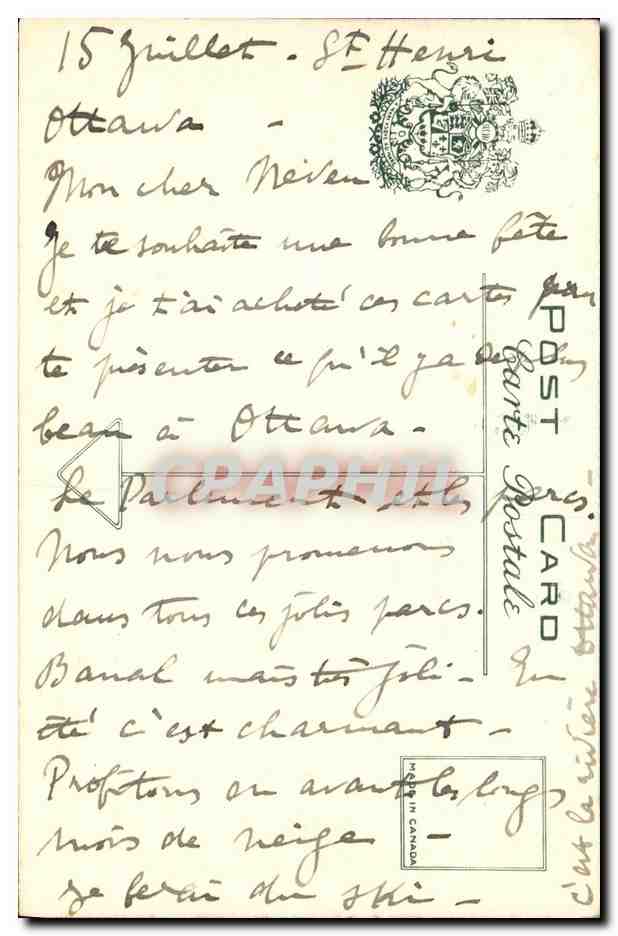 15 Juillet - St Henri
Ottawa -
Mon cher Neveu
Je te souhaite une bonne fête
et je t'ai acheté ces cartes pour
te présenter ce qu'il y a de plus
beau à Ottawa -
Le Parlement et les parcs.
Nous nous promenons
dans tous ces jolis parcs.
Banal mais très joli - En
été c'est charmant -
Profitons en avant les longs
mois de neige -
Je ferai du ski -
c'est la rivière Ottawa -
POST CARD
Carte Postale
MADE IN CANADA
CPAPHIL